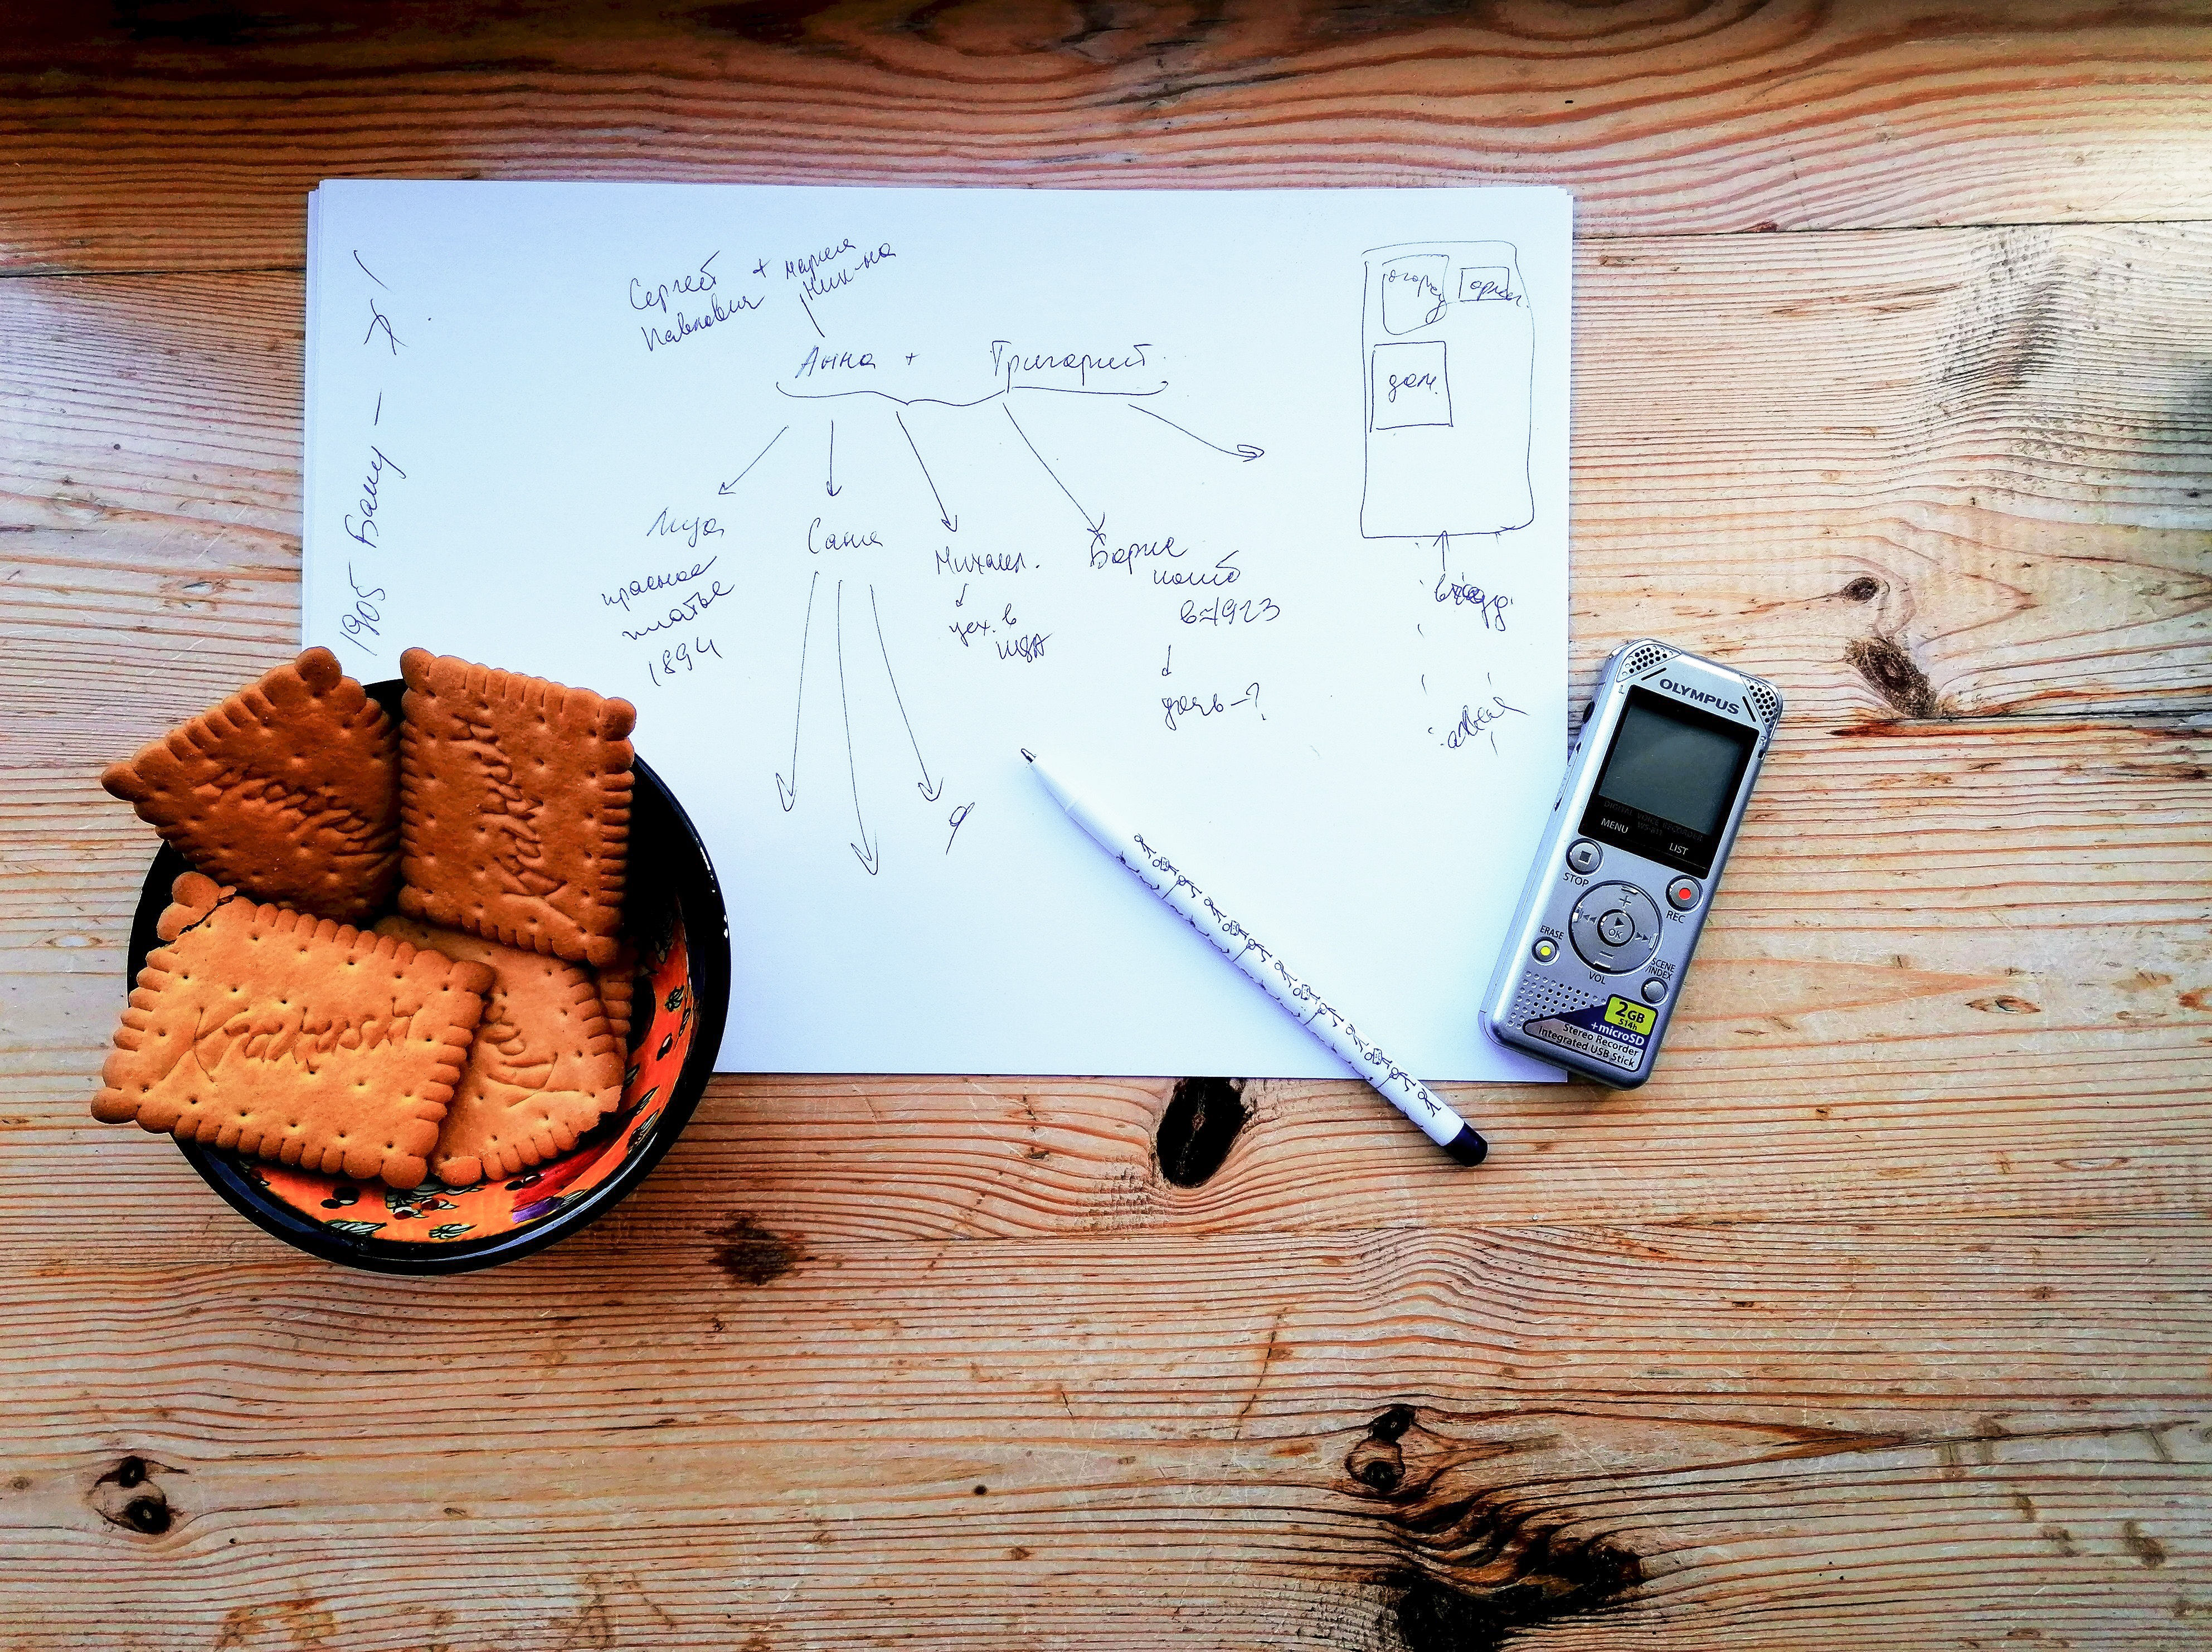 1905 Баку —
Сергей + Мария
Павлович Ник-на
Анна + Григорий
Лиза
красное
платье
1894
Саша
Михаил.
уех. в
США
Борис
погиб
в 1923
дочь - ?
я
огород
дом.
вход
OLYMPUS
DIGITAL VOICE RECORDER
MENU
LIST
STOP
REC
+
OK
–
ERASE
VOL
SCENE
/INDEX
2GB
514h
+microSD
Stereo Recorder
Integrated USB Stick